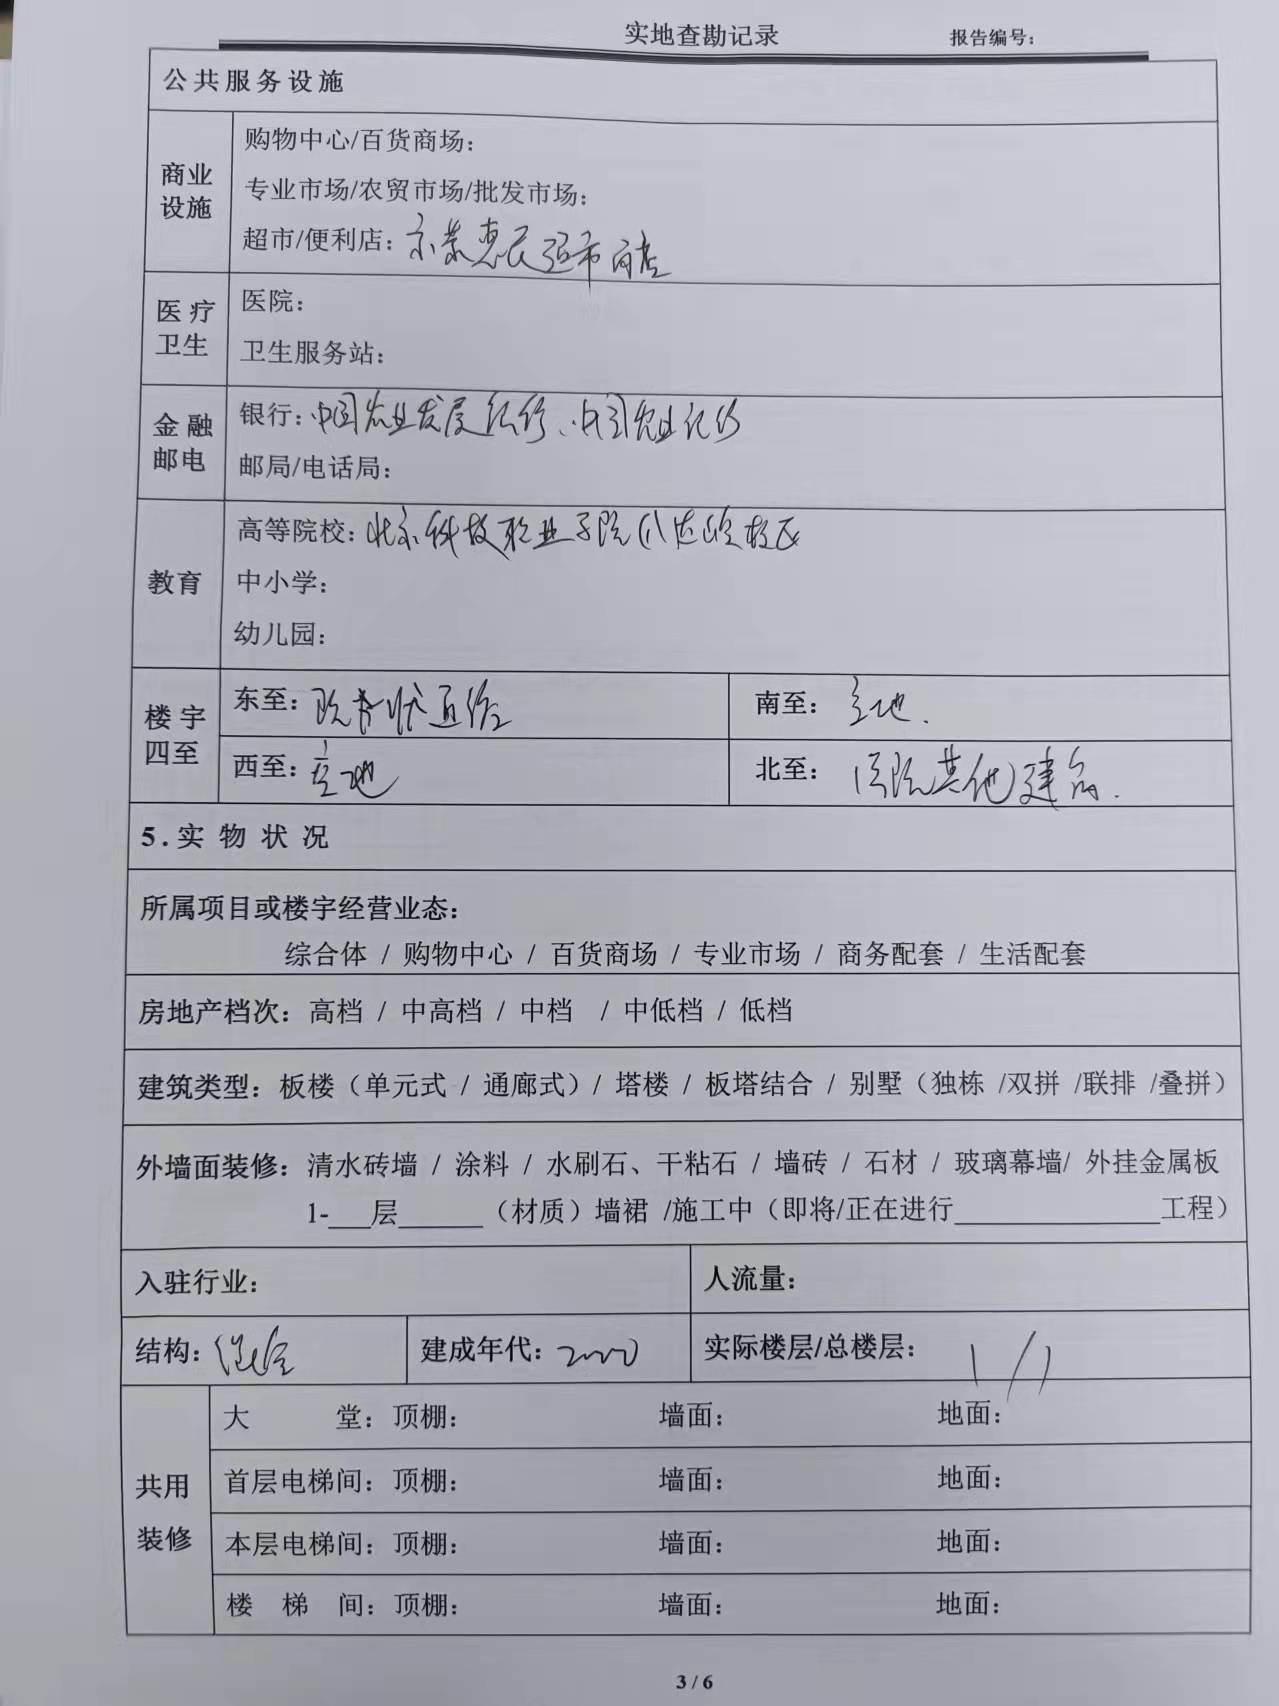 实地查勘记录 报告编号：
公共服务设施
商业设施
购物中心/百货商场：
专业市场/农贸市场/批发市场：
超市/便利店：京荣惠民超市
医疗卫生
医院：
卫生服务站：
金融邮电
银行：中国农业发展银行、中国农业银行
邮局/电话局：
教育
高等院校：北京科技职业学院八达岭校区
中小学：
幼儿园：
楼宇四至
东至： 南至：空地.
西至：空地 北至：医院其他建筑.
5.实物状况
所属项目或楼宇经营业态：
综合体 / 购物中心 / 百货商场 / 专业市场 / 商务配套 / 生活配套
房地产档次：高档 / 中高档 / 中档 / 中低档 / 低档
建筑类型：板楼（单元式 / 通廊式）/ 塔楼 / 板塔结合 / 别墅（独栋 /双拼 /联排 /叠拼）
外墙面装修：清水砖墙 / 涂料 / 水刷石、干粘石 / 墙砖 / 石材 / 玻璃幕墙/ 外挂金属板
1-___层______（材质）墙裙 /施工中（即将/正在进行_______________工程）
入驻行业： 人流量：
结构：混合 建成年代：2000 实际楼层/总楼层：1/1
共用装修
大堂：顶棚： 墙面： 地面：
首层电梯间：顶棚： 墙面： 地面：
本层电梯间：顶棚： 墙面： 地面：
楼梯间：顶棚： 墙面： 地面：
3 / 6